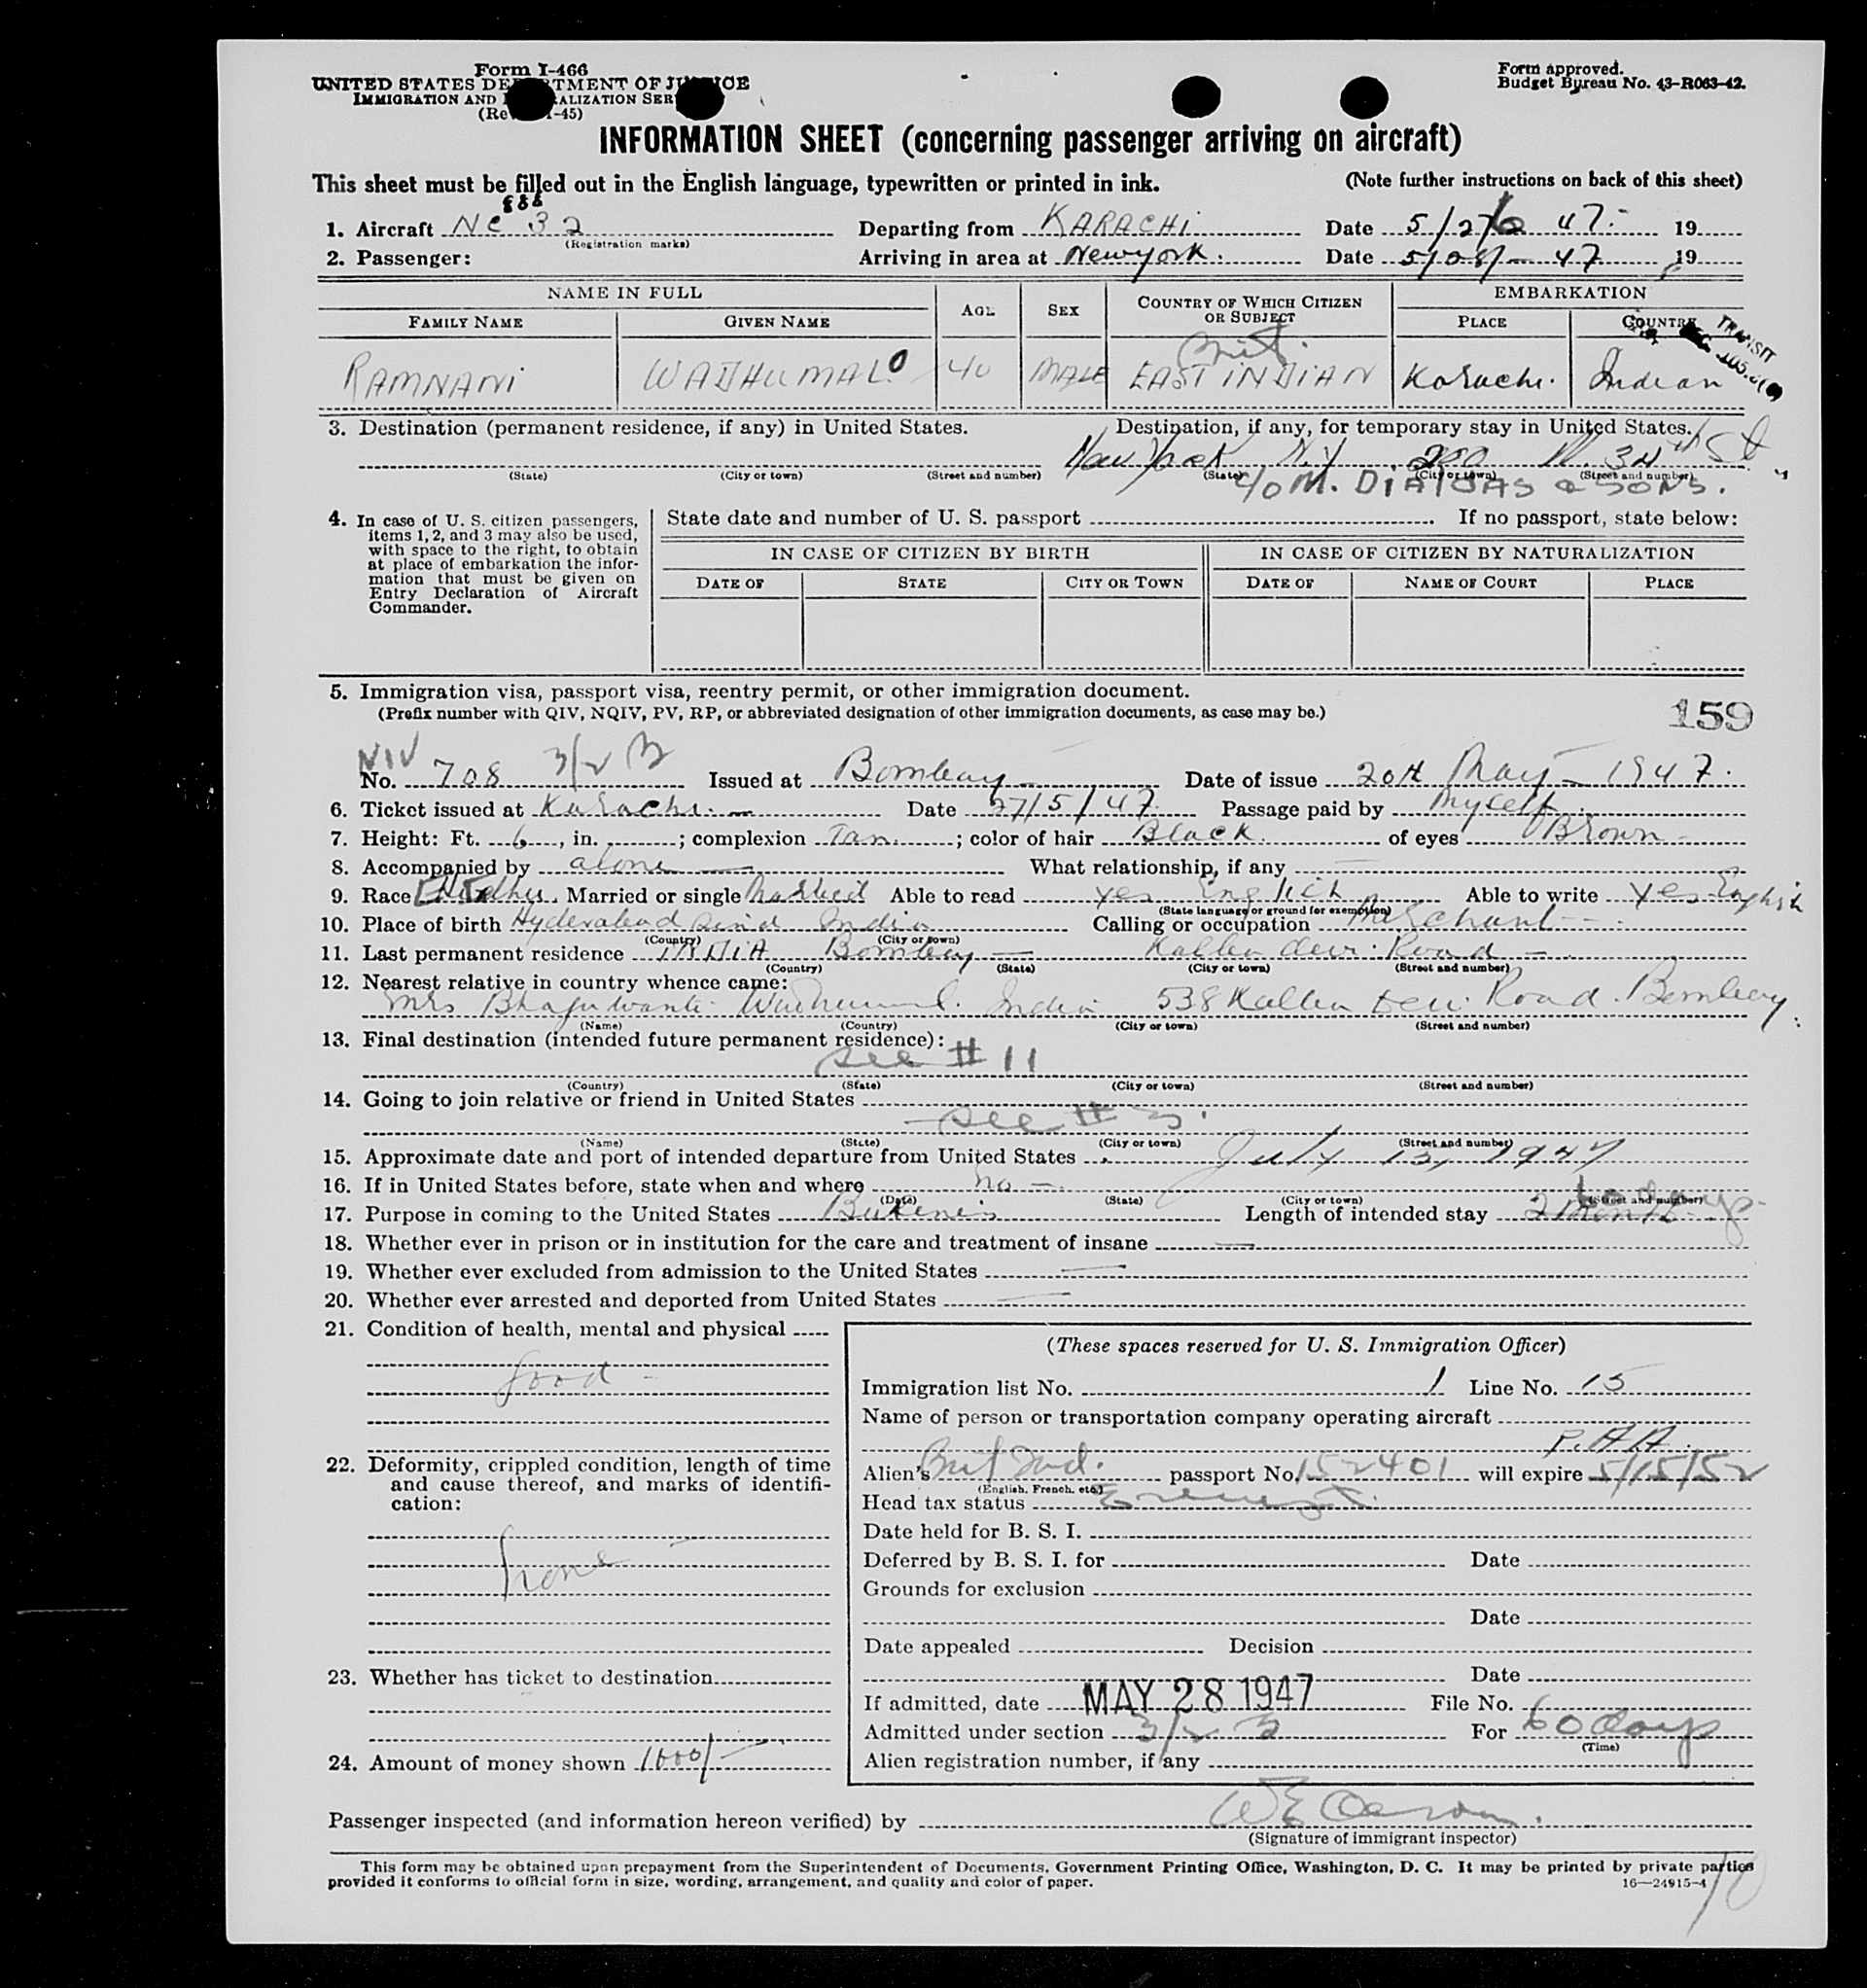 Form I-466
UNITED STATES DEPARTMENT OF JUSTICE
IMMIGRATION AND NATURALIZATION SERVICE
(Re -45)
Form approved.
Budget Bureau No. 43-R063-42.
INFORMATION SHEET (concerning passenger arriving on aircraft)
This sheet must be filled out in the English language, typewritten or printed in ink. (Note further instructions on back of this sheet)
888
1. Aircraft NC 32 Departing from KARACHI Date 5/26 47 19
(Registration marks)
2. Passenger: Arriving in area at Newyork. Date 5/28/- 47 19
NAME IN FULL AGE SEX COUNTRY OF WHICH CITIZEN OR SUBJECT EMBARKATION
FAMILY NAME GIVEN NAME PLACE COUNTRY
TRANSIT
Brit.
RAMNANI WADHUMAL 40 MALE EAST INDIAN Karachi. Indian
3. Destination (permanent residence, if any) in United States. Destination, if any, for temporary stay in United States.
New York N.Y. 200 W. 34th St.,
(State) (City or town) (Street and number) (State) (City or town) (Street and number)
c/o M. DIALDAS & SONS.
4. In case of U. S. citizen passengers, items 1, 2, and 3 may also be used, with space to the right, to obtain at place of embarkation the information that must be given on Entry Declaration of Aircraft Commander.
State date and number of U. S. passport If no passport, state below:
IN CASE OF CITIZEN BY BIRTH IN CASE OF CITIZEN BY NATURALIZATION
DATE OF STATE CITY OR TOWN DATE OF NAME OF COURT PLACE
5. Immigration visa, passport visa, reentry permit, or other immigration document.
(Prefix number with QIV, NQIV, PV, RP, or abbreviated designation of other immigration documents, as case may be.)
159
NIV 3/2 B
No. 708 Issued at Bombay Date of issue 20th May - 1947.
6. Ticket issued at Karachi. Date 27/5/47 Passage paid by Myself.
7. Height: Ft. 6, in. ; complexion Tan ; color of hair Black. of eyes Brown
8. Accompanied by alone What relationship, if any
9. Race Married or single Married Able to read yes English Able to write yes English
(State language or ground for exemption)
10. Place of birth Hyderabad Sind India Calling or occupation Merchant
(Country) (City or town)
11. Last permanent residence INDIA Bombay Kalba devi Road
(Country) (State) (City or town) (Street and number)
12. Nearest relative in country whence came:
Mrs Bhagwanti Wadhumal. India 538 Kalba Devi Road. Bombay
(Name) (Country) (City or town) (Street and number)
13. Final destination (intended future permanent residence):
see # 11
(Country) (State) (City or town) (Street and number)
14. Going to join relative or friend in United States
see # 3.
(Name) (State) (City or town) (Street and number)
15. Approximate date and port of intended departure from United States July 15, 1947
16. If in United States before, state when and where no
(Date) (State) (City or town) (Street and number)
17. Purpose in coming to the United States Length of intended stay 60 days
18. Whether ever in prison or in institution for the care and treatment of insane
19. Whether ever excluded from admission to the United States
20. Whether ever arrested and deported from United States
21. Condition of health, mental and physical
good
22. Deformity, crippled condition, length of time and cause thereof, and marks of identification:
none
23. Whether has ticket to destination
24. Amount of money shown 1000/-
(These spaces reserved for U. S. Immigration Officer)
Immigration list No. 1 Line No. 15
Name of person or transportation company operating aircraft
P.A.A.
Alien's Brit Ind. passport No. 152401 will expire 5/15/52
(English, French, etc.)
Head tax status Exempt.
Date held for B. S. I.
Deferred by B. S. I. for Date
Grounds for exclusion
Date
Date appealed Decision
Date
If admitted, date MAY 28 1947 File No.
Admitted under section 3/2 B For 60 days
(Time)
Alien registration number, if any
Passenger inspected (and information hereon verified) by
(Signature of immigrant inspector)
This form may be obtained upon prepayment from the Superintendent of Documents, Government Printing Office, Washington, D. C. It may be printed by private parties
provided it conforms to official form in size, wording, arrangement, and quality and color of paper. 16—24915-4